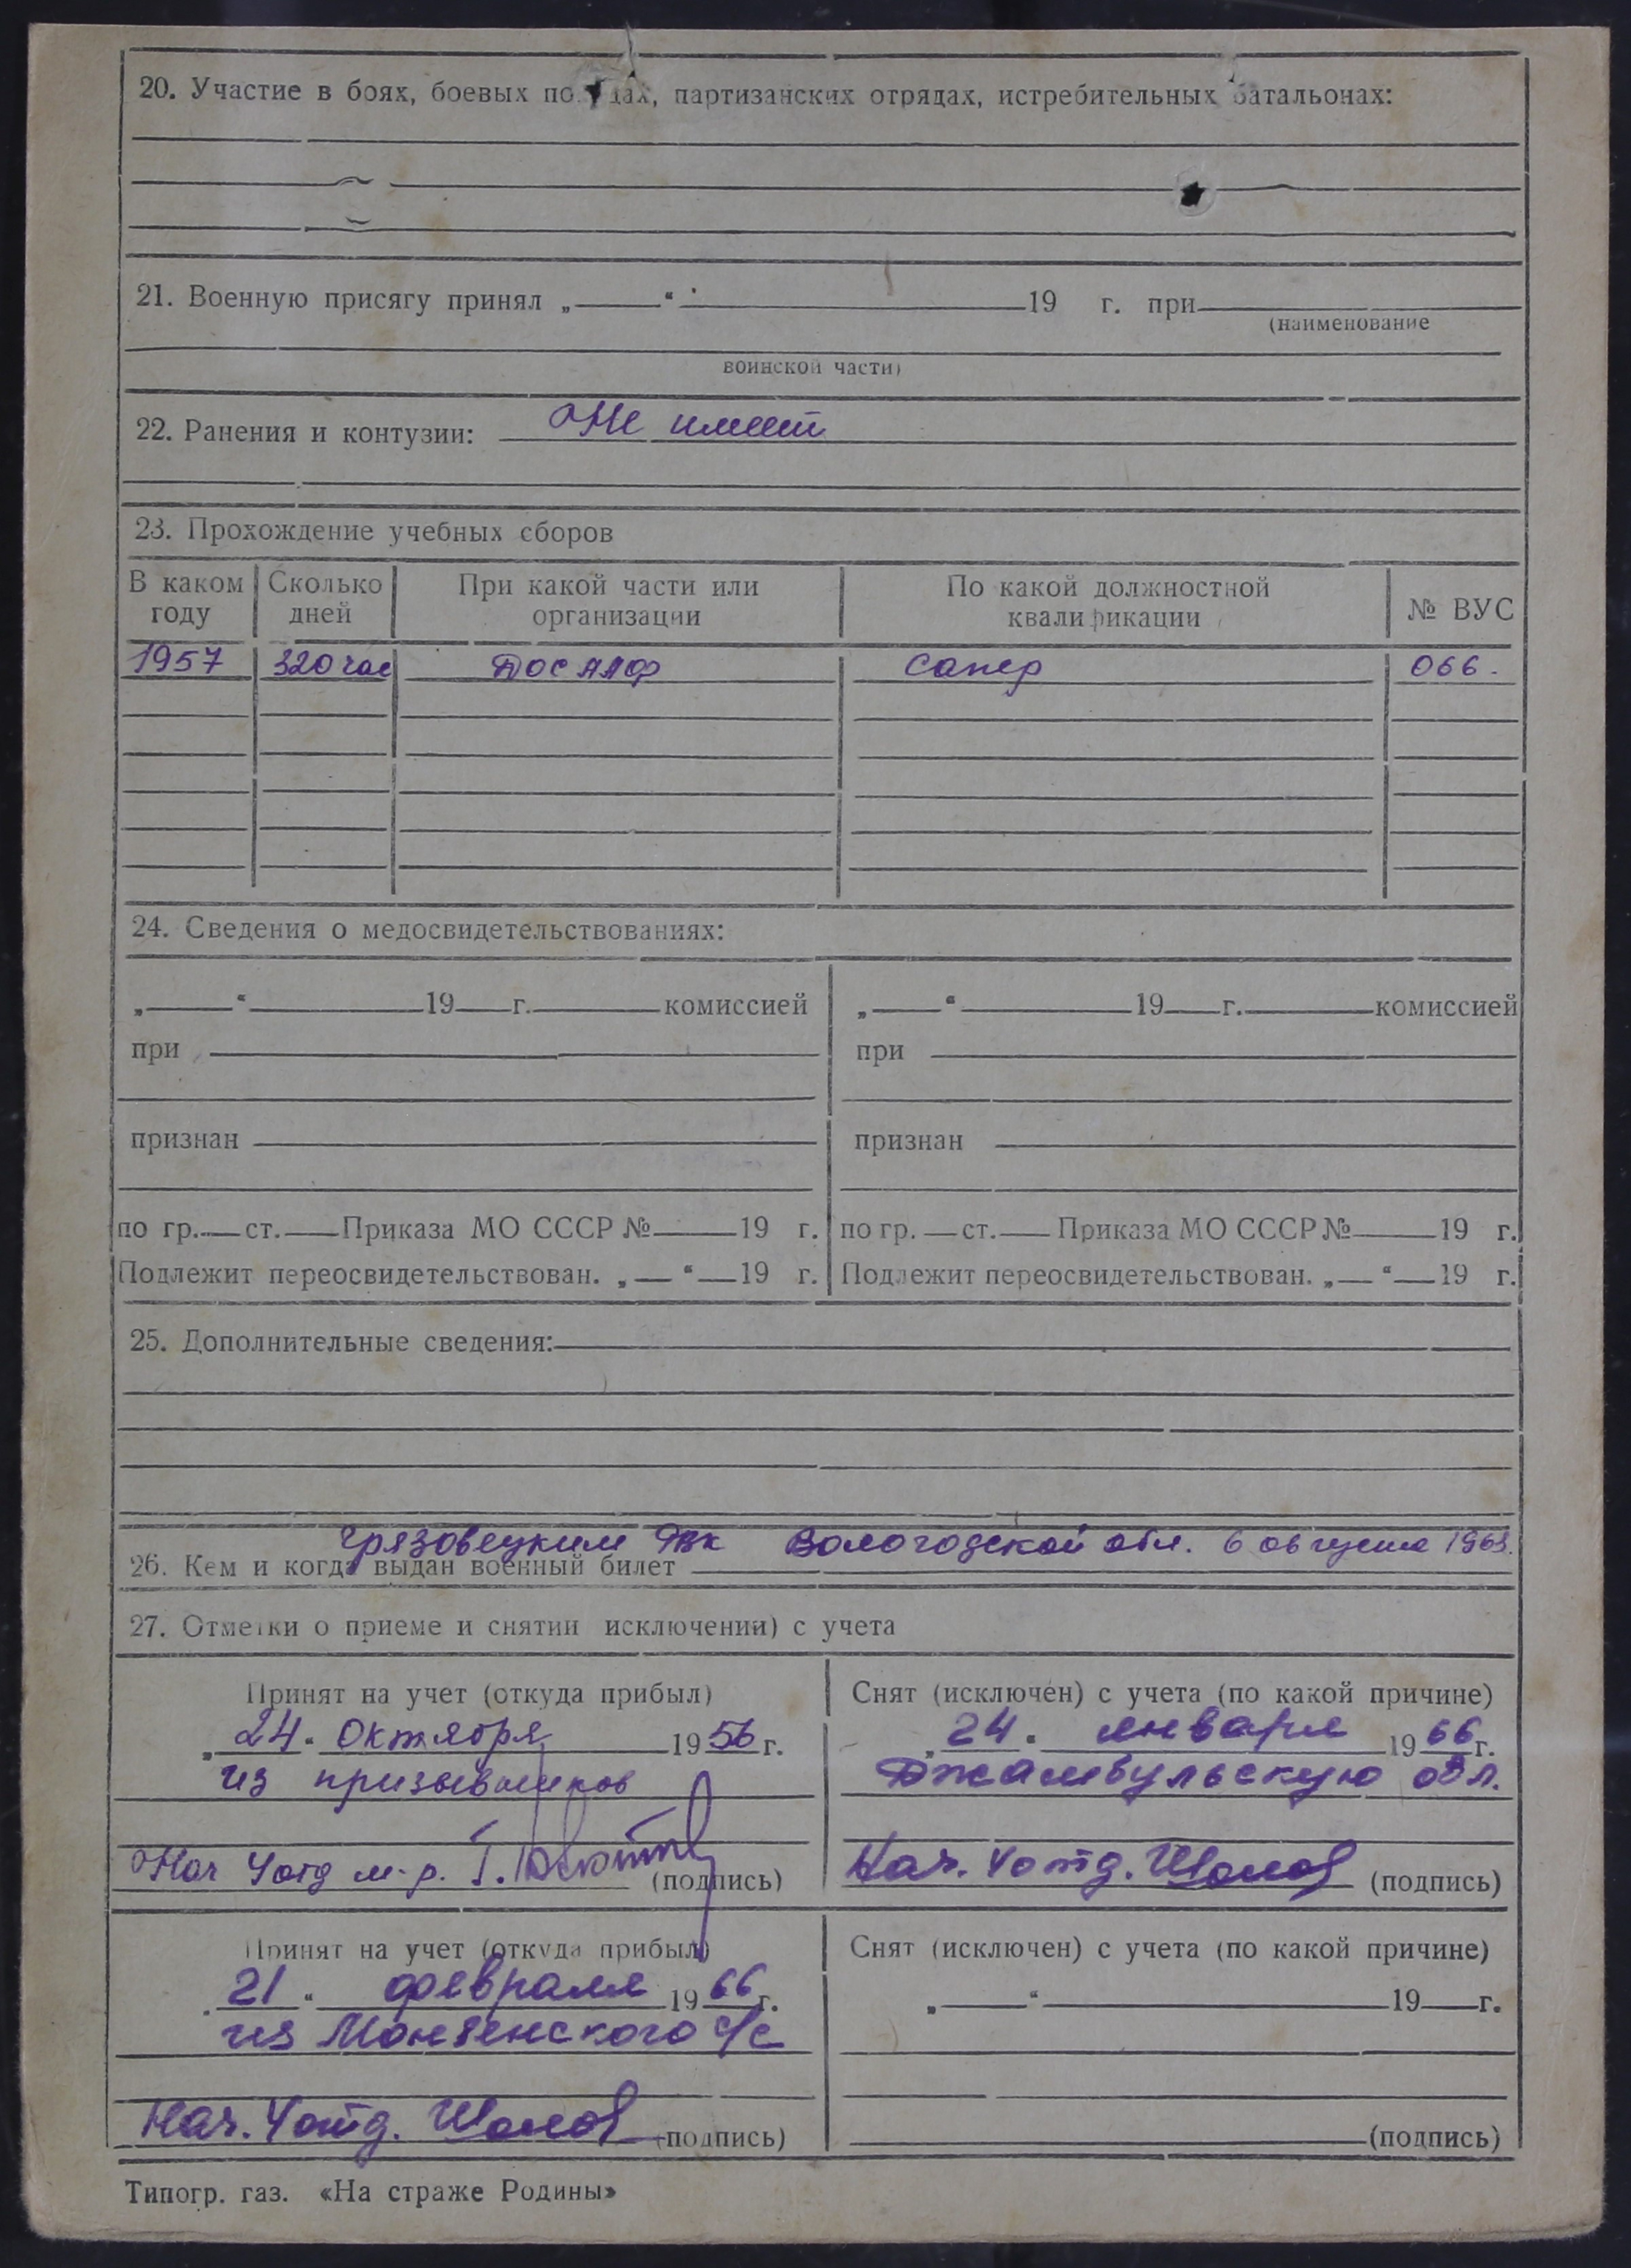 20. Участие в боях, боевых по дах, партизанских отрядах, истребительных батальонах:
21. Военную присягу принял „ “ 19 г. при
(наименование
воинской части)
22. Ранения и контузии: Не имеет
23. Прохождение учебных сборов
В каком году Сколько дней При какой части или организации По какой должностной квалификации № ВУС
1957 320 час ДОСААФ Сапер 066.
24. Сведения о медосвидетельствованиях:
„ “ 19 г. комиссией „ “ 19 г. комиссией
при при
признан признан
по гр. ст. Приказа МО СССР № 19 г. по гр. ст. Приказа МО СССР № 19 г.
Подлежит переосвидетельствован. „ “ 19 г. Подлежит переосвидетельствован. „ “ 19 г.
25. Дополнительные сведения:
Грязовецким РВК Вологодской обл. 6 августа 1963.
26. Кем и когда выдан военный билет
27. Отметки о приеме и снятии исключении) с учета
Принят на учет (откуда прибыл) Снят (исключен) с учета (по какой причине)
„24“ Октября 1956 г. „24“ января 1966 г.
из призывников Джамбульскую обл.
Нач 4 отд м-р. (подпись) Нач. 4 отд. (подпись)
Принят на учет (откуда прибыл) Снят (исключен) с учета (по какой причине)
21“ февраля 1966 г. „ “ 19 г.
из Монзенского с/с
Нач. 4 отд. (подпись) (подпись)
Типогр. газ. «На страже Родины»